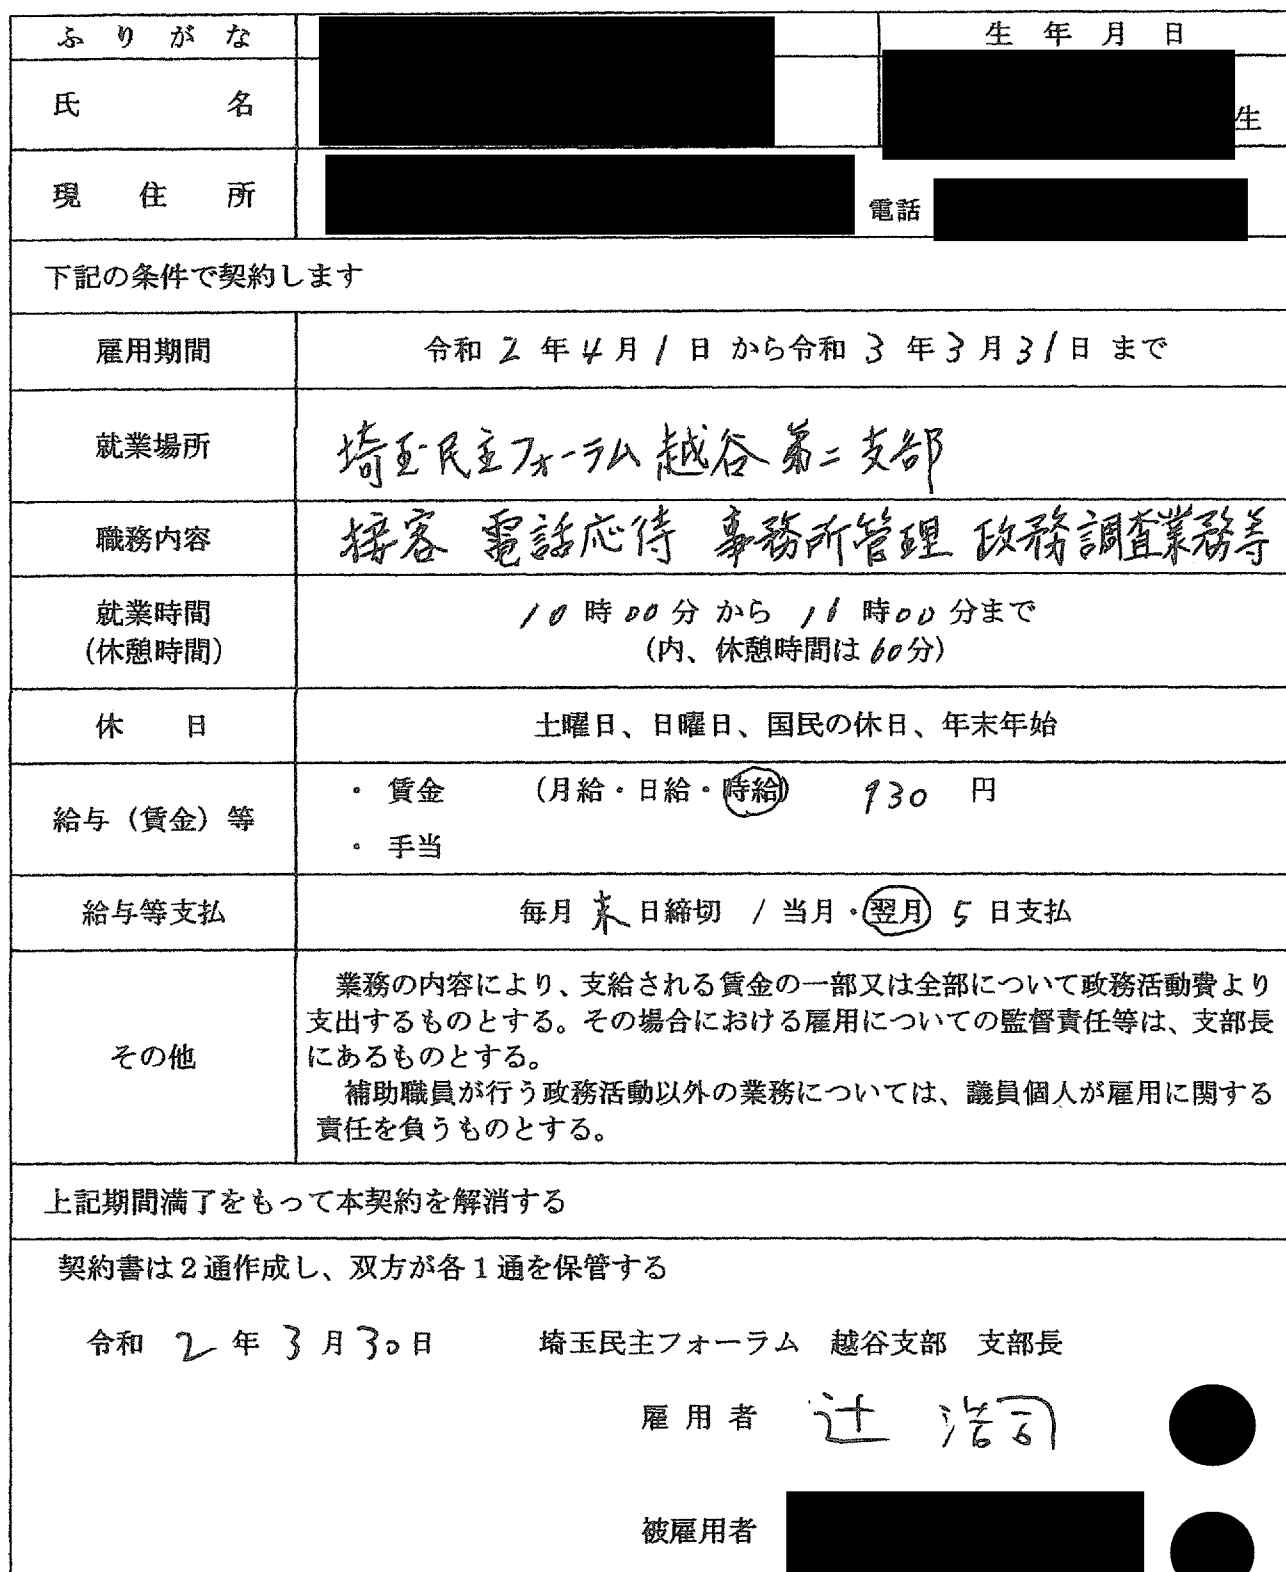 ふりがな 生年月日
氏名 生
現住所 電話
下記の条件で契約します
雇用期間 令和 2 年 4 月 1 日 から令和 3 年 3 月 31 日 まで
就業場所 埼玉民主フォーラム 越谷第二支部
職務内容 接客 電話応待 事務所管理 政務調査業務等
就業時間 10 時 00 分 から 16 時 00 分まで
(休憩時間) (内、休憩時間は 60 分)
休日 土曜日、日曜日、国民の休日、年末年始
給与(賃金)等 ・ 賃金 (月給・日給・時給) 930 円
・ 手当
給与等支払 毎月 末 日締切 / 当月・翌月 5 日支払
業務の内容により、支給される賃金の一部又は全部について政務活動費より
支出するものとする。その場合における雇用についての監督責任等は、支部長
その他 にあるものとする。
補助職員が行う政務活動以外の業務については、議員個人が雇用に関する
責任を負うものとする。
上記期間満了をもって本契約を解消する
契約書は2通作成し、双方が各1通を保管する
令和 2 年 3 月 30 日 埼玉民主フォーラム 越谷支部 支部長
雇用者 辻 浩司
被雇用者